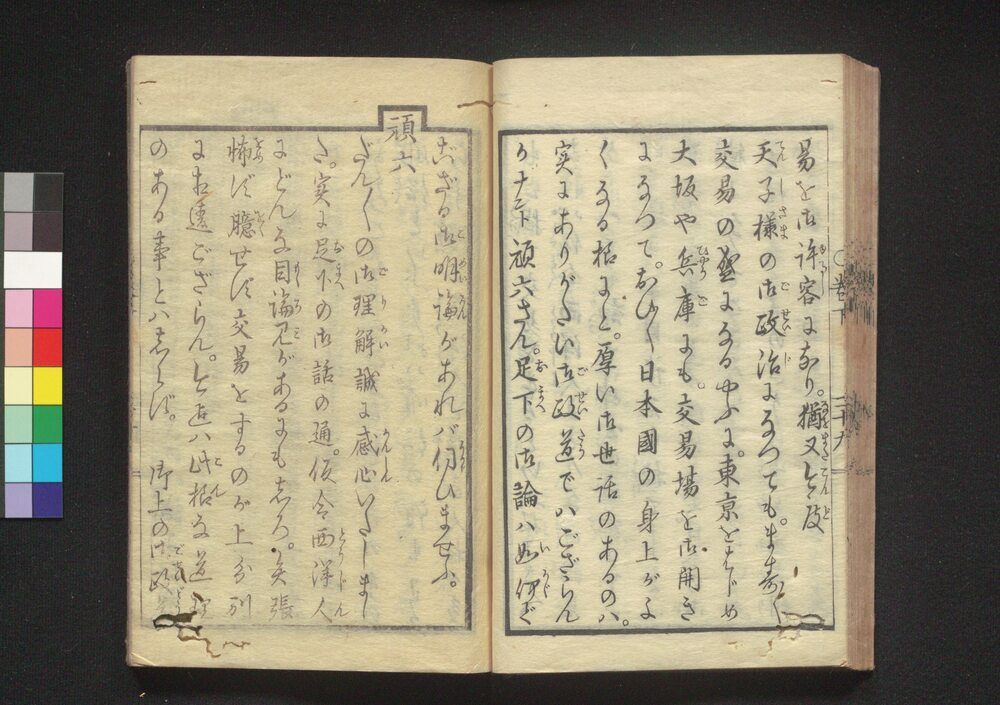 易を御許容になり。猶又今度
天子様の御政治になつても。ます〱
交易の盛になるやふに。東京をはじめ
大坂や兵庫にも。交易場を御開き
になつて。おひ〱日本國の身上がよ
くなる様にと。厚い御世話のあるのハ。
実にありがたい御政道でハござらん
か ナント頑六さん。足下の御論ハ如何だ
頑六
ござる御明論があれバ伺ひませふ。
だん〱の御理解誠に感心いたしまし
た。実に足下の御話の通。假令西洋人
にどんな目論見があるにもしろ。矢張
怖ず臆せず交易をするのが上分別
に相違ござらん。今迄ハ此様な道理
のある事とハしらず。 御上の御政